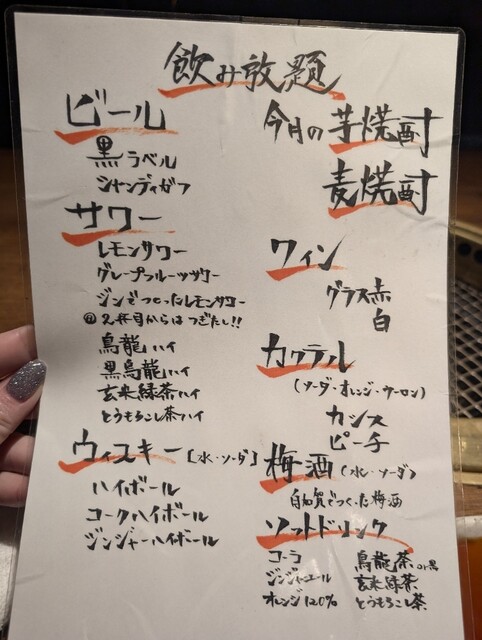 飲み放題
ビール
黒ラベル
シャンディガフ
サワー
レモンサワー
グレープフルーツサワー
ジンでつくったレモンサワー
2杯目からは つぎたし!!
烏龍ハイ
黒烏龍ハイ
玄米緑茶ハイ
とうもろこし茶ハイ
ウィスキー [水・ソーダ]
ハイボール
コークハイボール
ジンジャーハイボール
今月の芋焼酎
麦焼酎
ワイン
グラス赤
白
カクテル
(ソーダ・オレンジ・ウーロン)
カシス
ピーチ
梅酒 (水・ソーダ)
白加賀でつくった梅酒
ソフトドリンク
コーラ
ジンジャエール
オレンジ120%
烏龍茶 or黒
玄米緑茶
とうもろこし茶